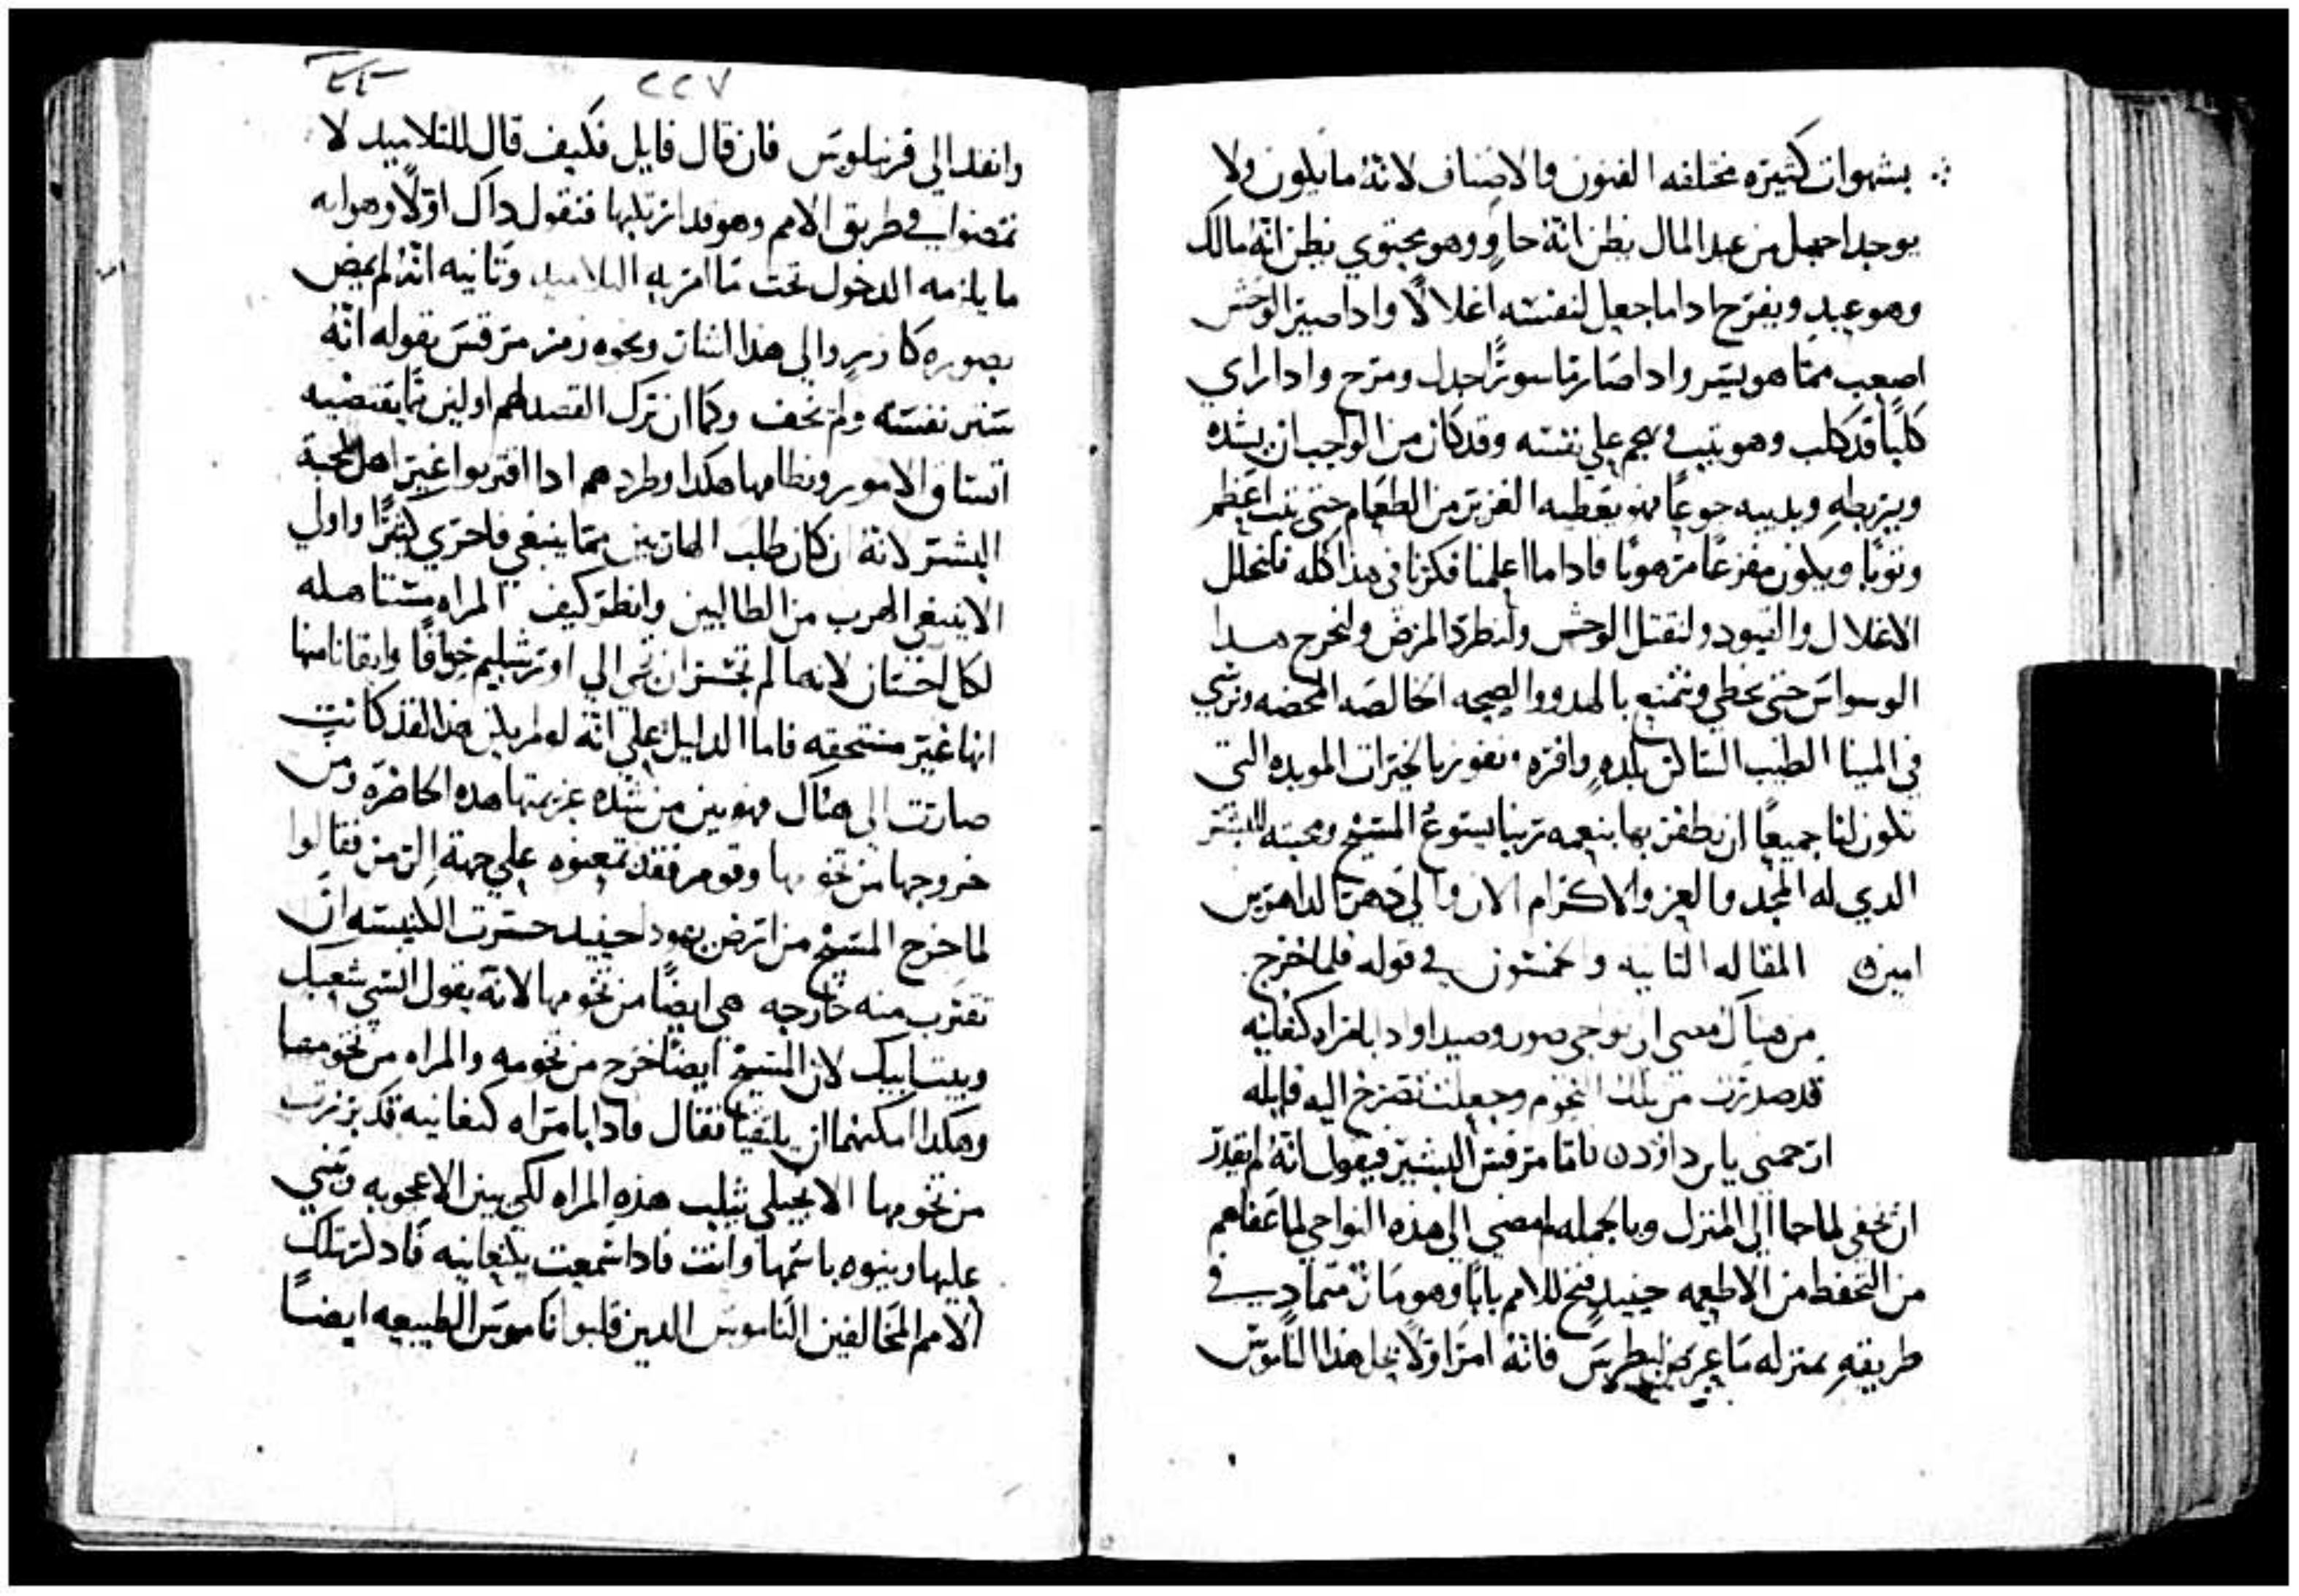 بشهوات كثيره مختلفه الفنون والاصناف لانه ما يكون ولا
يوجد اجهل من عبد المال يظن انه حاوٍ وهو محتوي يظن انه مالك
وهو عبد ويفرح اداما جعل لنفسه اغلالًا وادا صير الوحش
اصعب مما هو يسر وادا صار ماسورًا جدل ومرح وادا راي
كلبًا قد كلب وهو يثب ويهجم علي نفسه وقد كان من الواجب ان يشده
ويربطه ويديبه جوعًا فهو يعطيه الغزير من الطعام حتي يثب اعظم
وثوبًا ويكون مفزعًا مرهوبًا فاداما اعلمنا فكرنا في هدا كله فلنحلل
الاغلال والقيود ولنقتل الوحش ولنطرد المرض ولنخرج هدا
الوسواس حتي نحظي ونتمتع بالهدوو الصحه الخالصه المحضه ونرسي
في المينا الطيب الساكن بلده وافره ونفوز بالخيرات الموبده التي
تكون لنا جميعًا ان نظفر بها بنعمه ربنا يسوع المسيح ومحبته للبشر
الدي له المجد والعز والاكرام الان والي دهر الداهرين
امين ه المقاله التانيه والخمسون في قوله فلما خرج
من هناك مضي الي نواحي صور وصيدا وادا بامراه كنعانيه
قد صدرت من تلك التخوم وجعلت تصرخ اليه قايله
ارحمني يابن داوود ن فاما مرقس البشير فيقول انه لم يقدر
ان يخفي لما جا الي المنزل وبالجمله لم مضي الي هده النواحي لما عفاهم
من التحفظ من الاطعمه حينيدٍ فتح للامم بابًا وهو مار متمادي في
طريقه بمنزله ما عرض لبطرس فانه امر اولًا بحل هدا الناموس
٢٢٧
وانفد الي قرنيلوس فان قال قايل فكيف قال للتلاميد لا
تمضوا في طريق الامم وهو قد ازتكبها فنقول داك اولًا وهو انه
ما يلزمه الدخول تحت ما امر به التلاميد وتانيه انه لم يمض
بصوره كارز والي هدا الشان ونحوه رمز مرقس بقوله انه
ستر نفسه ولم يخف وكما ان ترك القصد لهم اولين مما يقتضيه
اتساق الامور ونظامها هكدا وطردهم ادا اقتربوا غير اهل لمحبة
البشر لانه ان كان طلب الهاربين مما ينبغي فاحري كثيرًا واولي
الا ينبغي الهرب من الطالبين وانظر كيف المراه مستاهله
لكل احسان لانها لم تجسر ان تجي الي اورشليم خوفًا وايقانا منها
انها غير مستحقه فاما الدليل علي انه لو لم يكن هدا لقد كانت
صارت الي هناك فهو بين من شده عزيمتها هده الحاضره ومن
خروجها من تخومها وقوم فقد تمعنوه علي جهة الرمز فقالوا
لما خرج المسيح من ارض يهودا حينيد جسرت الكنيسه ان
تقترب منه خارجه هي ايضًا من تخومها لانه يقول انسي شعبك
وبيت ابيك لان المسيح ايضًا خرج من تخومه والمراه من تخومها
وهكدا امكنهما ان يلتقيا فقال وادا بامراه كنعانيه قد برزت
من تخومها الانجيلي يثلب هذه المراه لكي يبين الاعجوبه ويثني
عليها وينوه باسمها وانت فادا سمعت بكنعانيه فادكر تلك
الامم المخالفين الناموس الدين قلبوا ناموس الطبيعه ايضًا